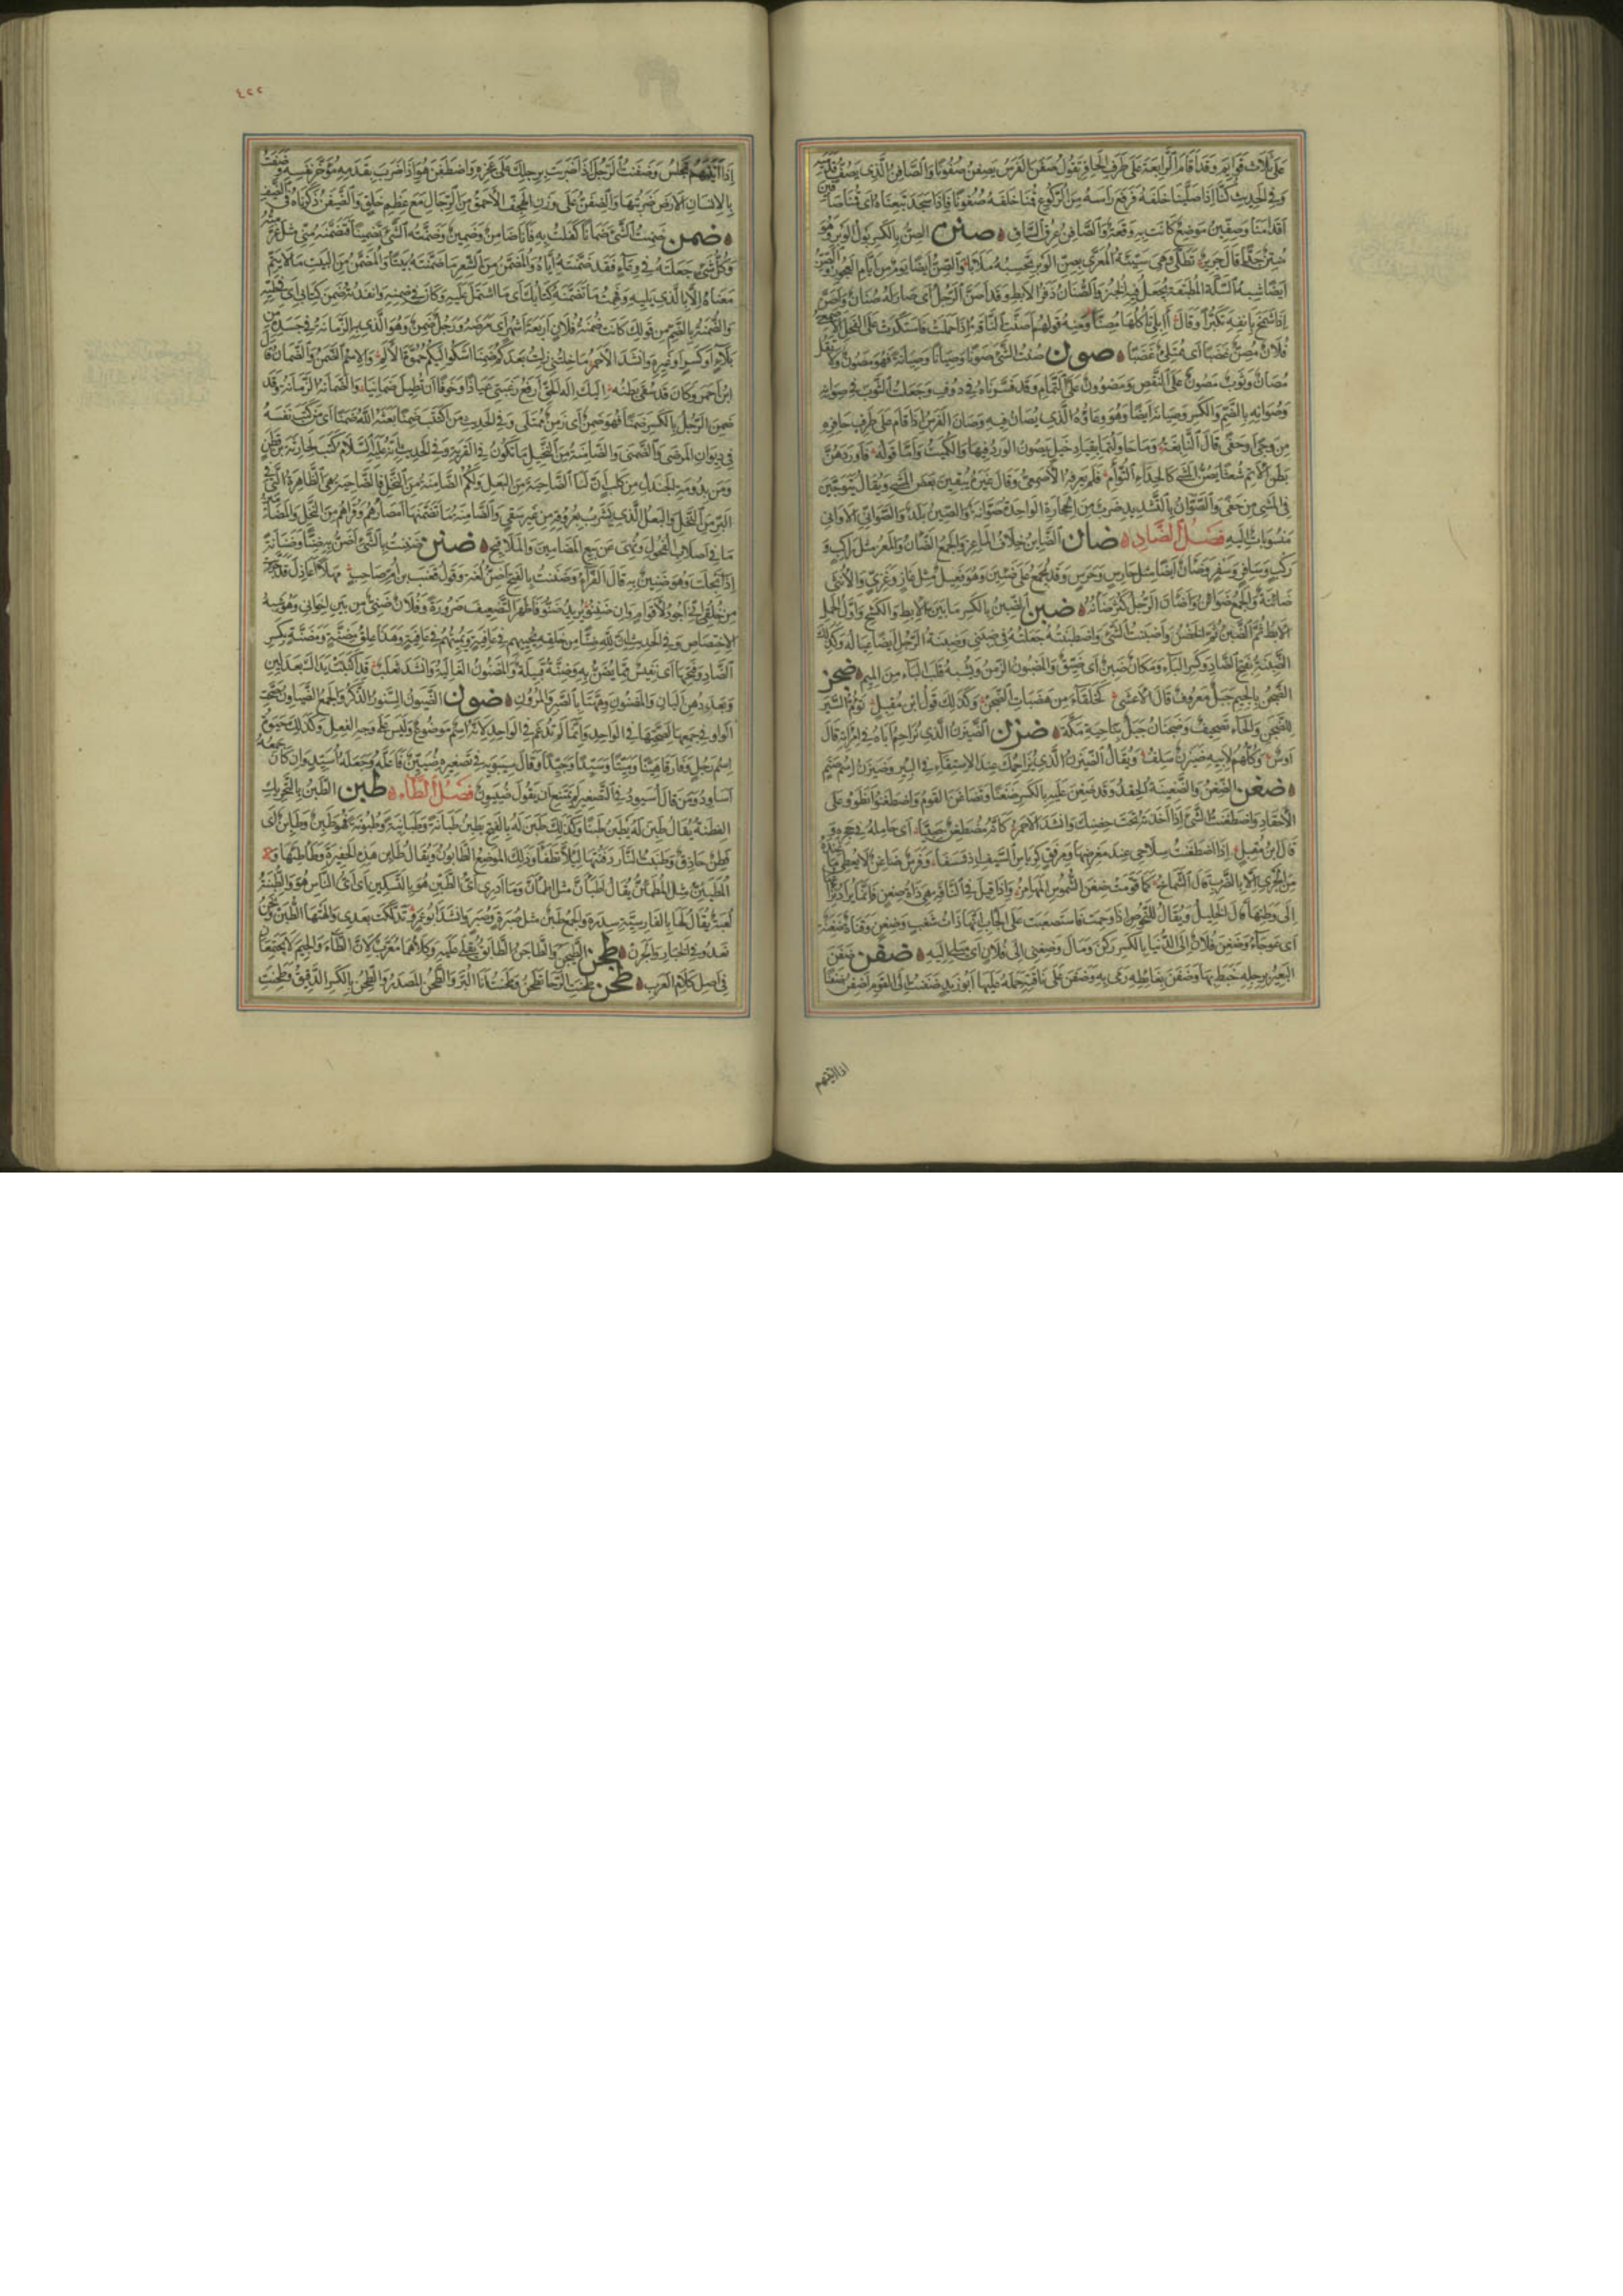 على ثلاث قوائم وقد اقام الرابعة على طرف الحافر تقول صفن الفرس يصفن صفونا والصافن الذي يصف قدميه
وفي الحديث كنا اذا صلينا خلفه فرفع راسه من الركوع قمنا خلفه صفونا فاذا سجد تبعناه اى قمنا صافين
اقدامنا وصفين موضع كانت به وقعة والصافن عرق الساق صنن الصن بالكسر بول الوبر وهو
منتن جدا قال جرير تطلى وهى سيئة المعرى بصن الوبر تحسبه ملابا والصن ايضا يوم من ايام العجوز والصن
ايضا شبه السلة المطبقة يجعل فيه الخبز والصنان ذفر الابط وقد اصن الرجل اى صار له صنان واصن
اذا شمخ بانفه تكبرا وقال أابلى تاكلها مصنا ومنه قولهم اصنت الناقة اذا حملت فاستكبرت على الفحل الاصمعى
فلان مصن غضبا اى ممتلئ غضبا صون صنت الشئ صونا وصيانا وصيانة فهو مصون ولا تقل
مصان وثوب مصون على النقص ومصوون على التمام وقد فسرناه في دوف وجعلت الثوب في صوانه
وصوانه بالضم والكسر وصيانه ايضا وهو وعاؤه الذي يصان فيه وصان الفرس اذا قام على طرف حافره
من وجى او حفى قال النابغة وما حاولتما بقياد خيل يصون الورد فيها والكميت واما قوله فاوردهن
بطن الاتم شعثا يصن المشى كالحداء التؤام فلم يعرفه الاصمعى وقال غيره يبقين بعض المشى ويقال يتوجين
في المشى من حفى والصوان بالتشديد ضرب من الحجارة الواحدة صوانة والصين بلد والصواني الاواني
منسوبات اليه فصل الضاد ضان الضاين خلاف الماعز والجمع الضان والمعز مثل راكب و
ركب وسافر وسفر وضان ايضا مثل حارس وحرس وقد يجمع على ضئين وهو فعيل مثل غاز وغزي والانثى
ضائنة والجمع ضوائن واضان الرجل كثر ضانه ضبن الضبن بالكسر ما بين الابط والكشح واول الجنب
الابط ثم الضبن ثم الحضن واضبنت الشئ واضطبنته جعلته في ضبني وضبنة الرجل ايضا عياله وكذلك
الضبنة بفتح الضاد وكسر الباء ومكان ضبن اى ضيق والمضبون الزمن ويشبه قلب الباء من الميم ضجن
الضجن بالجيم جبل معروف قال الاعشى كخلقاء من هضبات الضجن وكذلك قول ابن مقبل تؤم السير
للضجن والحاء تصحيف وضجنان جبل بناحية مكة ضزن الضيزن الذي يزاحم اباه في امراته قال
اوس وكلهم لابيه ضيزن سلف ويقال الضيزن الذي يزاحمك عند الاستقاء في البير وضيزن اسم صنم
ضغن الضغن والضغينة الحقد وقد ضغن عليه بالكسر ضغنا وتضاغن القوم واضطغنوا انطووا على
الاحقاد واضطغنت الشئ اذا اخذته تحت حضنك وانشد الاحمر كانه مضطغن صبيا اى حامله في حجره و
قال ابن مقبل اذا اضطغنت سلاحي عند مغرضها ومرفق كرياس السيف اذ شسفا وفرس ضاغن لا يعطى ما عنده
من الجرى الا بالضرب قال الشماخ كما قومت ضغن الشموس المهامز واذا قيل في الناقة هي ذات ضغن فانما يراد نزاعها
الى وطنها قال الخليل ويقال للنحوص اذا وحمت فاستصعبت على الجاب انها ذات شغب وضغن وقناة ضغنة
اى عوجاء وضغن فلان الى الدنيا بالكسر ركن ومال وضغني الى فلان اى ميلي اليه ضفن ضفن
البعير برجله خبط بها وضفن بغائطه رمى به وضفن على ناقته حمله عليها ابو زيد ضفنت الى القوم اضفن ضفنا
اذا اتيتهم
٤٢٢
اذا اتيتهم تجلس وضفنت الرجل اذا ضربت برجلك على عجزه واضطفن هو اذا ضرب بقدمه مؤخر نفسه وضفنت
بالانسان الارض ضربتها والضفن على وزن الهجف الاحمق من الرجال مع عظم خلق والضيفن ذكرناه في الضيف
ضمن ضمنت الشئ ضمانا كفلت به فانا ضامن وضمين وضمنته الشئ تضمينا فتضمنه عني مثل غرمته
وكل شئ جعلته في وعاء فقد ضمنته اياه والمضمن من الشعر ما ضمنته بيتا والمضمن من البيت ما لا يتم
معناه الا بالذي يليه وفهمت ما تضمنه كتابك اى ما اشتمل عليه وكان في ضمنه وانفذته ضمن كتابي اى في طيه
والضمنة بالضم من قولك كانت ضمنة فلان اربعة اشهر اى مرضه ورجل ضمن وهو الذي به الزمانة في جسده من
بلاء او كسر او غيره وانشد الاحمر ما خلتني زلت بعدكم ضمنا اشكوا اليكم حموة الالم والاسم الضمن والضمان قال
ابن احمر وكان قد سقى بطنه اليك اله الحق ارفع رغبتي عياذا وخوفا ان تطيل ضمانيا والضمانة الزمانة وقد
ضمن الرجل بالكسر ضمنا فهو ضمن اى زمن مبتلى وفي الحديث من اكتتب ضمنا بعثه الله ضمنا اى من كتب نفسه
في ديوان المرضى والضمنى والضامنة من النخيل ما تكون في القرية وفي الحديث انه عليه السلام كتب لحارثة بن قطن
ومن بدومة الجندل من كلب ان لنا الضاحية من البعل ولكم الضامنة من النخل فالضاحية هي الظاهرة التي في
البر من النخل والبعل الذي يشرب بعروقه من غير سقي والضامنة ما تضمنها امصارهم وقراهم من النخل والمضامين
ما في اصلاب الفحول ونهى عن بيع المضامين والملاقيح ضنن ضننت بالشئ اضن به ضنا وضنانة
اذا بخلت وهو ضنين به قال الفراء وضننت بالفتح اضن لغة وقول قعنب بن ام صاحب مهلا اعاذل قد جربت
من خلقي اني اجود لاقوام وان ضننوا يريد ضنوا فاظهر التضعيف ضرورة وفلان ضني من بين اخواني وهو شبه
الاختصاص وفي الحديث ان لله ضنا من خلقه يحييهم في عافية ويميتهم في عافية وهذا علق مضنة ومضنة بكسر
الضاد وفتحها اى نفيس مما يضن به وضنة قبيلة والمضنون الغالية وانشد ثعلب قد اكنبت يداك بعد لين
وبعد دهن البان والمضنون وهمتا بالصبر والمرون ضون الضيون السنور الذكر والجمع الضياون صحت
الواو في جمعها لصحتها في الواحد وانما لم تدغم في الواحد لانه اسم موضوع وليس على وجه الفعل وكذلك حيوة
اسم رجل وفارقا هينا وميتا وسيدا وجيدا وقال سيبويه في تصغيره ضيين فاعله وجعله كاسيد وان كان جمعه
اساود ومن قال اسيود في التصغير لم يمتنع ان يقول ضيون فصل الطاء طبن الطبن بالتحريك
الفطنة يقال طبن له يطبن طبنا وكذلك طبن له بالفتح يطبن طبانة وطبانية وطبونة فهو طبن وطابن اى
فطن حاذق وطبنت النار دفنتها ليلا تطفا وذلك الموضع الطابون ويقال طابن هذه الحفيرة وطاطنها و
المطبئن مثل المطمئن يقال اطبان مثل اطمان وما ادرى اى الطبن هو بالتسكين اى اى الناس هو والطبنة
لعبة يقال لها بالفارسية سدره والجمع طبن مثل صبرة وصبر وانشد ابو عمرو تدكلت بعدي والهتها الطبن ونحن
نعدو في الخبار والجرن طجن الطيجن والطاجن الطابق يقلى عليه وكلاهما معرب لان الطاء والجيم لا يجتمعان
في اصل كلام العرب طحن طحنت الرحى تطحن وطحنت انا البر والطحن المصدر والطحن بالكسر الدقيق وطحنت